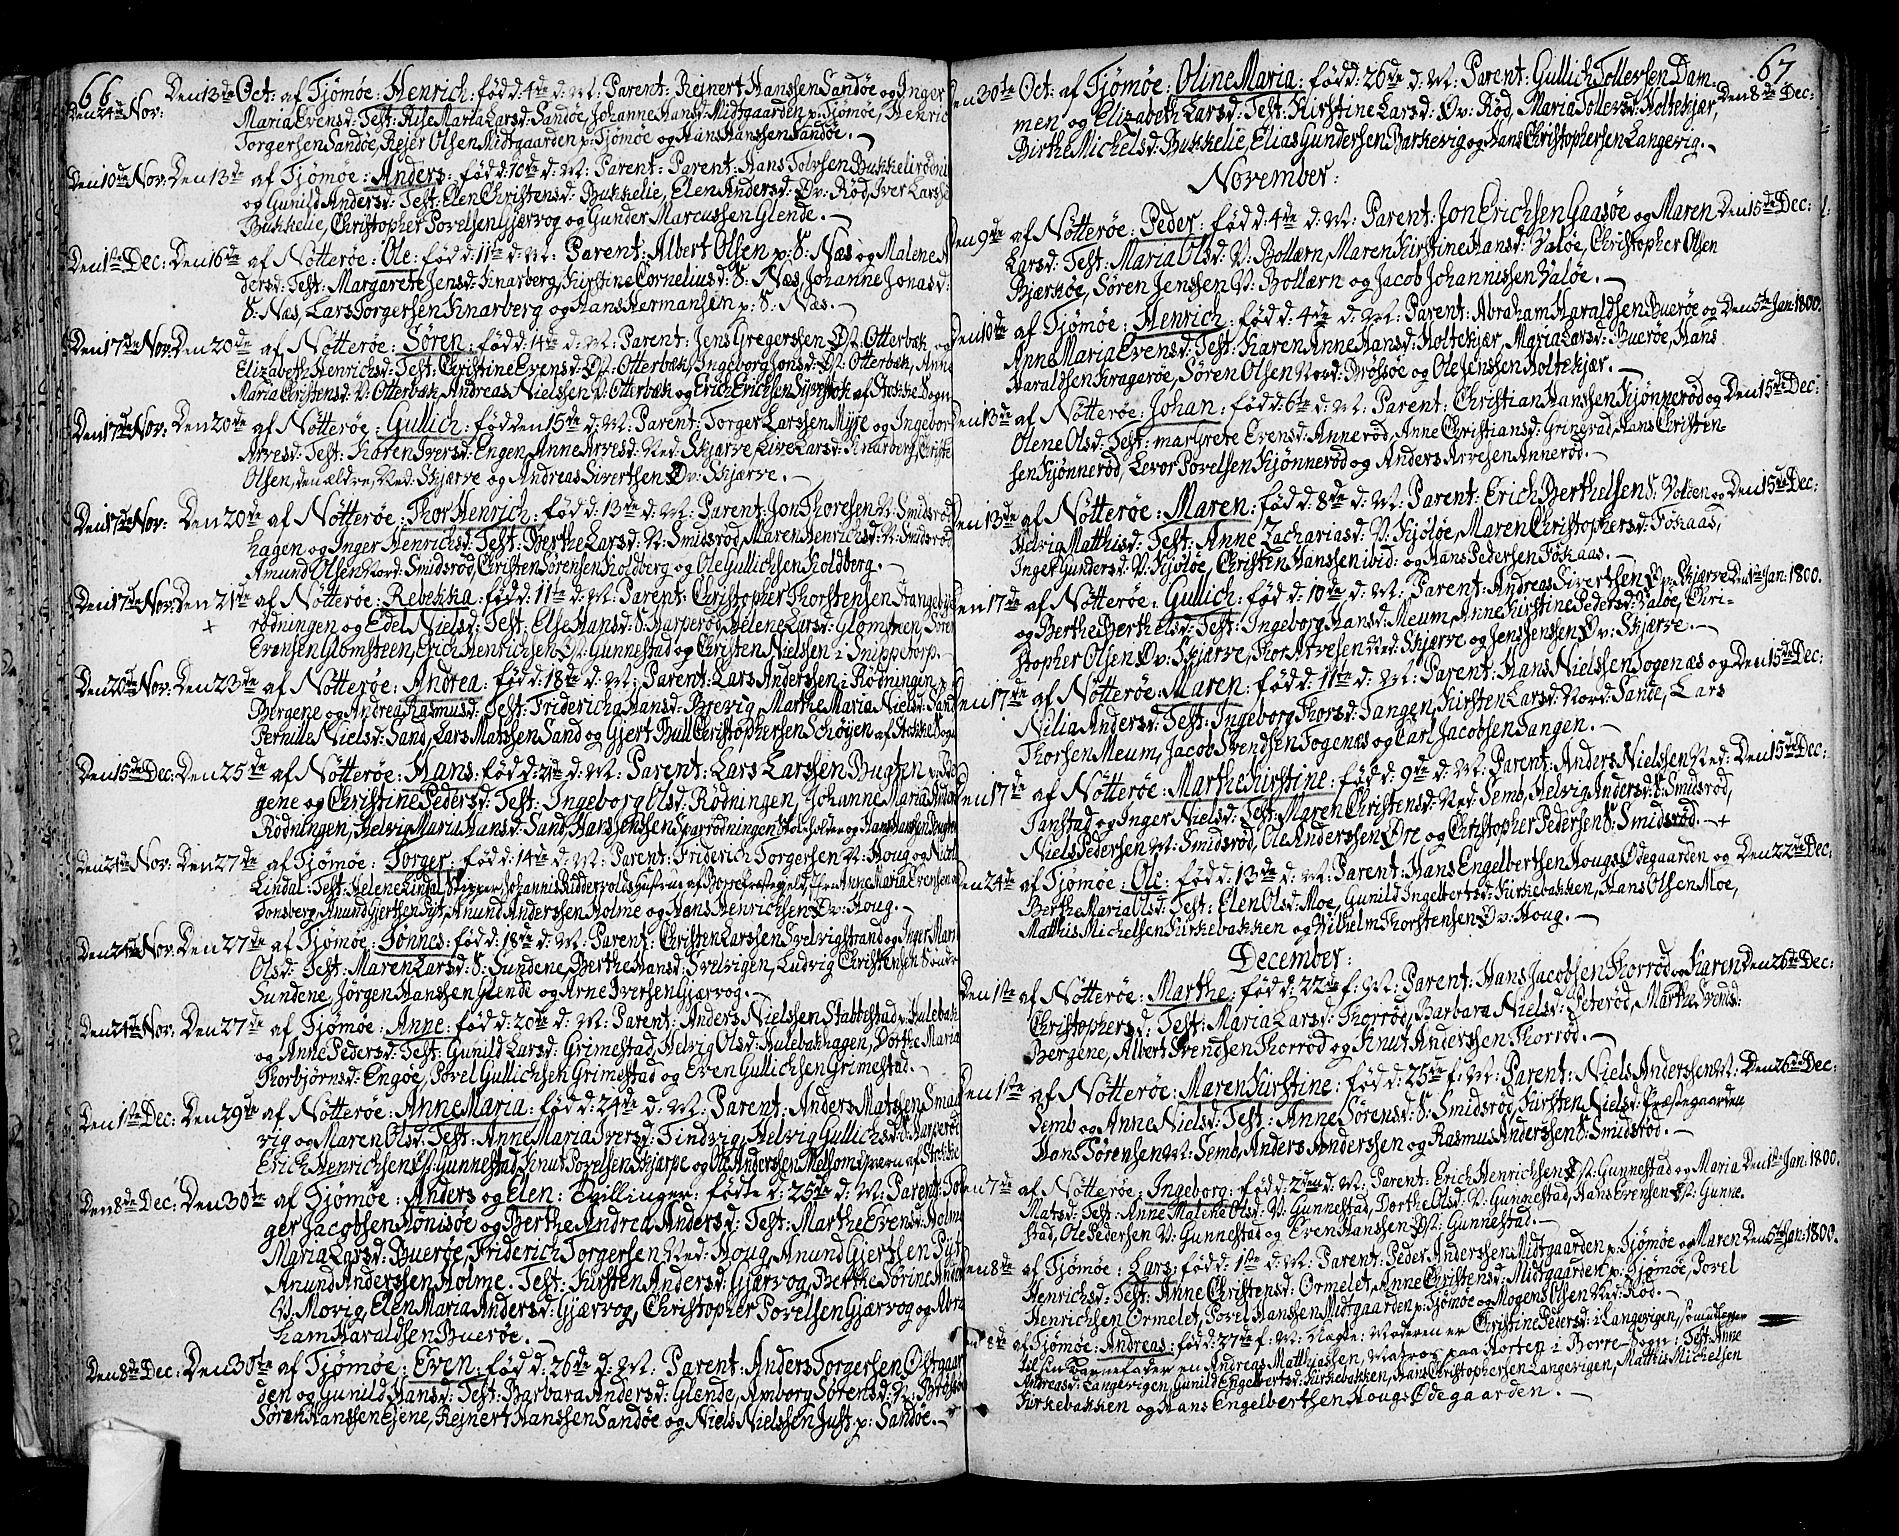 66.
Den 13de Oct: af Tjömöe: Henrich: född: 4de d: M: Parent: Reinert Hanssen Sandöe og Inger
Den 24de Nov:
Maria Evensd: Test: Else Maria Larsd: Sandöe, Johanne Hansd: Midtgaarden p: Tjömöe, Henric
Torgersen Sandöe, Rejer Olsen Midtgaarden p: Tjömöe og Hans Hanssen Sandöe. —
Den 10de Nov: Den 13de af Tjömöe: Anders: född: 10de d: M: Parent: Parent: Hans Tolvsen Bukkelirödni
og Gunild Andersd: Test: Elen Christensd: Bukkelie, Elen Andersd: Öv: Röd, Iver Larssen
Bukkelie, Christopher Povelsen Gjærvog og Gunder Marcussen Glende. —
Den 1ste Dec: Den 16de af Nötteröe: Ole: född: 11te d: M: Parent: Albert Olsen p: S: Næs og Malene An
dersd: Test: Margarete Jensd: Knarberg, Kirstine Corneliusd: S: Næs, Johanne Jonasd:
S: Næs, Lars Torgersen Knarberg og Hans Hermansen p: S: Næs. —
Den 17de Nov: Den 20de af Nötteröe: Sören: född: 14de d: M: Parent: Jens Gregerssen Öst: Otterbæk og
Elizabeth Henrichsd: Test: Christine Evensd: Öst: Otterbæk, Ingeborg Jonsd: Öst: Otterbæk, Anne
Maria Christensd: V: Otterbæk, Andreas Nielssen V: Otterbæk og Erich Erichsen af Stokke Sogn
Den 17de Nov: Den 20de af Nötteröe: Gullich: född den 15de d: M: Parent: Torger Larssen Myre og Ingebor
Arvesd: Test: Karen Iversd: Engen, Anne Arvesd: Ned: Skjærve, Live Larsd: Knarberg, Christe
Olsen, den ældre, Ned: Skjærve og Andreas Sivertsen Öv: Skjærve. —
Den 17de Nov: Den 20de af Nötteröe: Thor Henrich: född: 13de d: M: Parent: Jon Thoresen N: Smidsröd
hagen og Inger Henrichsd: Test: Berthe Larsd: N: Smidsröd, Maren Henrichsd: N: Smidsröd
Amund Olsen Nord: Smidsröd, Christen Sörensen Holdberg og Ole Gullichsen Holdberg. —
Den 17de Nov: Den 21de af Nötteröe: Rebekka: född: 11te d: M: Parent: Christopher Thorstensen Stangeby
+
rödningen og Edel Nielsd: Test: Else Hansd: S: Harperöd, Helene Larsd: Glomsteen, Sören
Evensen Glomsteen, Erich Henrichsen Öst: Gunnestad og Christen Nielsen i Snippetorp. —
Den 20de Nov: Den 23de af Nötteröe: Andrea: född: 18de d: M: Parent: Lars Anderssen i Rödningen p:
Bergene og Andrea Rasmusd: Test: Friderica Hansd: Brevig, Marthe Maria Nielsd: Sand
Pernille Nielsd: Sand, Lars Matssen Sand og Gjert Bull Christophersen Schöyen af Stokke Sogn
Den 15de Dec: Den 25de af Nötteröe: Hans: född: 21de d: M: Parent: Lars Larssen Bugten p: Ber
gene og Christine Pedersd: Test: Ingeborg Olsd: Rödningen, Johanne Maria Anders
Rödningen, Helvig Maria Hansd: Sand, Hans Jenssen Sparrödningen Skoleholder og Hans Hanssen Bugten
Den 24de Nov: Den 27de af Tjömöe: Torger: född: 14de d: M: Parent: Friderich Torgersen N: Houg og Nicol
Lindal: Test: Helene Lindal, Skipper Johannis Riddervolds Hustrue af Borre Præstegield, Jfr Anne Maria Evensen
Tonsberg, Anund Gjertsen Pyt, Anund Anderssen Holme og Hans Henrichsen Öv: Houg. —
Den 24de Nov: Den 27de af Tjömöe: Tönnes: född: 18de d: M: Parent: Christen Larssen Svelvigstrand og Inger Mari
Olsd: Test: Maren Larsd: S: Sundene, Berthe Hansd: Svelvigen, Ludvig Christensen Sondr
Sundene, Jörgen Hanssen Glende og Arne Iversen Gjærvog. —
Den 24de Nov: Den 27de af Tjömöe: Anne: född: 20de d: M: Parent: Anders Nielssen Stabbestad v: Hulebak
og Anne Pedersd: Test: Gunild Larsd: Grimestad, Helvig Olsd: Hulebakhagen, Dorthe Maria
Thorbjörnsd: Engöe, Povel Gullichsen Grimestad og Even Gullichsen Grimestad. —
Den 1ste Dec: Den 29de af Nötteröe: Anne Maria: född: 24de d: M: Parent: Anders Matssen Smaa
vig og Maren Olsd: Test: Anne Maria Iversd: Tindvig, Helvig Gullichsd: S: Harperöd
Erich Henrichsen Öst: Gunnestad, Knut Povelsen Skjærpe og Ole Anderssen Melsom af Stokke
Den 8de Dec: Den 30te af Tjömöe: Anders og Elen: Tvillinger: födte d: 25de d: M: Parent: Tor
ger Jacobsen Hönisöe og Berthe Andrea Andersd: Test: Marthe Evensd: Holme
Maria Larsd: Bueröe, Friderich Torgersen Ned: Houg, Anund Gjertsen Pyt
Anund Anderssen Holme. Test: Kirsten Andersd: Gjærvog, Berthe Sörine Anders
V: Movig, Elen Maria Andersd: Gjærvog, Christopher Povelsen Gjærvog og Abra
ham Haraldsen Bueröe. —
Den 8de Dec: Den 30te af Tjömöe: Even: född: 26de d: M: Parent: Anders Torgersen Östgaar
den og Gunild Hansd: Test: Barbara Andersd: Glende, Amborg Sörensd: N: Brötsöe
Sören Hanssen Ejene, Rejnert Hanssen Sandöe og Niels Nielssen Just p: Sandöe. —
67
Den 30te Oct: af Tjömöe: Oline Maria: född: 26de d: M: Parent: Gullich Tollevsen Dam- Den 8de Dec:
men og Elizabeth Larsd: Test: Kirstine Larsd: Öv: Röd, Maria Tollevsd: Holtekjær,
Birthe Michelsd: Bukkelie, Elias Gundersen Barkevig og Hans Christophersen Langevig. —
November:
Den 9de af Nötteröe: Peder: född: 4de d: M: Parent: Jon Erichsen Gaasöe og Maren Den 15de Dec:
Larsd: Test: Maria Olsd: V: Bollærn, Maren Kirstine Hansd: Valöe, Christopher Olsen
Bjerköe, Sören Jenssen V: Bollærn og Jacob Johannissen Valöe. —
Den 10de af Tjömöe: Henrich: född: 4de d: M: Parent: Abraham Haraldsen Bueröe og Den 5te Jan: 1800.
Anne Maria Evensd: Test: Karen Anne Hansd: Holtekjær, Maria Larsd: Bueröe, Hans
Haraldsen Krageröe, Sören Olsen Nord: Brötsöe og Ole Jenssen Holtekjær. —
Den 13de af Nötteröe: Johan: född: 6te d: M: Parent: Christian Hanssen Kjönneröd og Den 15de Dec:
Olene Olsd: Test: Margrete Evensd: Anneröd, Anne Christiansd: Grineröd, Hans Christen-
sen Kjönneröd, Levor Povelsen Kjönneröd og Anders Arvesen Anneröd. —
Den 13de af Nötteröe: Maren: född: 8de d: M: Parent: Erich Berthelsen S: Volden og Den 15de Dec:
Helvig Matthisd: Test: Anne Zachariasd: V: Kjöloe, Maren Christophersd: Fökaas,
Ingeb: Gundersd: V: Kjöloe, Christen Hanssen ibid: og Hans Pedersen Fökaas. —
Den 17de af Nötteröe: Gullich: född: 10de d: M: Parent: Andreas Sivertsen Öv: Skjærve Den 1ste Jan: 1800.
og Berthe Berthelsd: Test: Ingeborg Hansd: Meum, Anne Kirstine Pedersd: Valöe, Chri-
stopher Olsen Öv: Skjærve, Thor Arvesen Ned: Skjærve og Jens Jenssen Öv: Skjærve. —
Den 17de af Nötteröe: Maren: född: 11te d: M: Parent: Hans Nielssen Togenæs og Den 15de Dec:
Nilia Andersd: Test: Ingeborg Thorsd: Tangen, Kirsten Larsd: Nord: Sande, Lars
Thorsen Meum, Jacob Svendsen Togenæs og Carl Jacobsen Tangen. —
Den 17de af Nötteröe: Marthe Kirstine: född: 9de d: M: Parent: Anders Nielssen Ned: Den 15de Dec:
Tanstad og Inger Nielsd: Test: Maren Christensd: Ned: Semb, Helvig Andersd: S: Smidsröd,
Niels Pedersen N: Smidsröd, Ole Anderssen Öre og Christopher Pedersen S: Smidsröd. — +
Den 24de af Tjömöe: Ole: född: 13de d: M: Parent: Hans Engelbertsen Hougs Ödegaarden og Den 22de Dec:
Berthe Maria Olsd: Test: Elen Olsd: Moe, Gunild Ingelbertsd: Kirkebakken, Hans Olsen Moe,
Matthis Michelsen Kirkebakken og Vilhelm Thorstensen Öv: Houg. —
December:
Den 1ste af Nötteröe: Marthe: född: 22de f: M: Parent: Hans Jacobsen Thorröd og Karen Den 26de Dec:
Christophersd: Test: Maria Larsd: Thorröd, Barbara Nielsd: Peteröd, Marthe Svensd:
Bergene, Albert Svendsen Thorröd og Knut Anderssen Thorröd. —
Den 1ste af Nötteröe: Maren Kirstine: född: 25de f: M: Parent: Niels Anderssen N: Den 26de Dec:
Semb og Anne Nielsd: Test: Anne Sörensd: S: Smidsröd, Kirsten Nielsd: Præstegaarden
Hans Sörensen N: Semb, Anders Anderssen og Rasmus Anderssen S: Smidsröd. —
Den 7de af Nötteröe: Ingeborg: född: 2den d: M: Parent: Erich Henrichsen Öst: Gunnestad og Maria Den 1ste Jan: 1800.
Matsd: Test: Anne Malene Olsd: V: Gunnestad, Dorthe Olsd: V: Gunnestad, Hans Evensen Öst: Gunne-
stad, Ole Pedersen V: Gunnestad og Even Hanssen Öst: Gunnestad. —
Den 8de af Tjömöe: Lars: född: 1ste d: M: Parent: Peder Anderssen Midtgaarden p: Tjömöe og Maren Den 5te Jan: 1800.
Henrichsd: Test: Anne Christensd: Ormelet, Anne Christensd: Midtgaarden p: Tjömöe, Povel
Henrichsen Ormelet, Povel Hanssen Midtgaarden p: Tjömöe og Mogens Olsen Ned: Röd. —
Den 8de af Tjömöe: Andreas: född: 27de f: M: Uægte: Moderen er Christine Pedersd: i Langevigen, som udlegger
til sin Barnefader en Andreas Matthiassen, Matros paa Horten i Borre-Sogn: Test: Anne
Andreasd: Langevigen, Gunild Engelbertsd: Kirkebakken, Hans Christophersen Langevigen, Matthis Michelsen
Kirkebakken og Hans Engelbertsen Hougs Ödegaarden. —